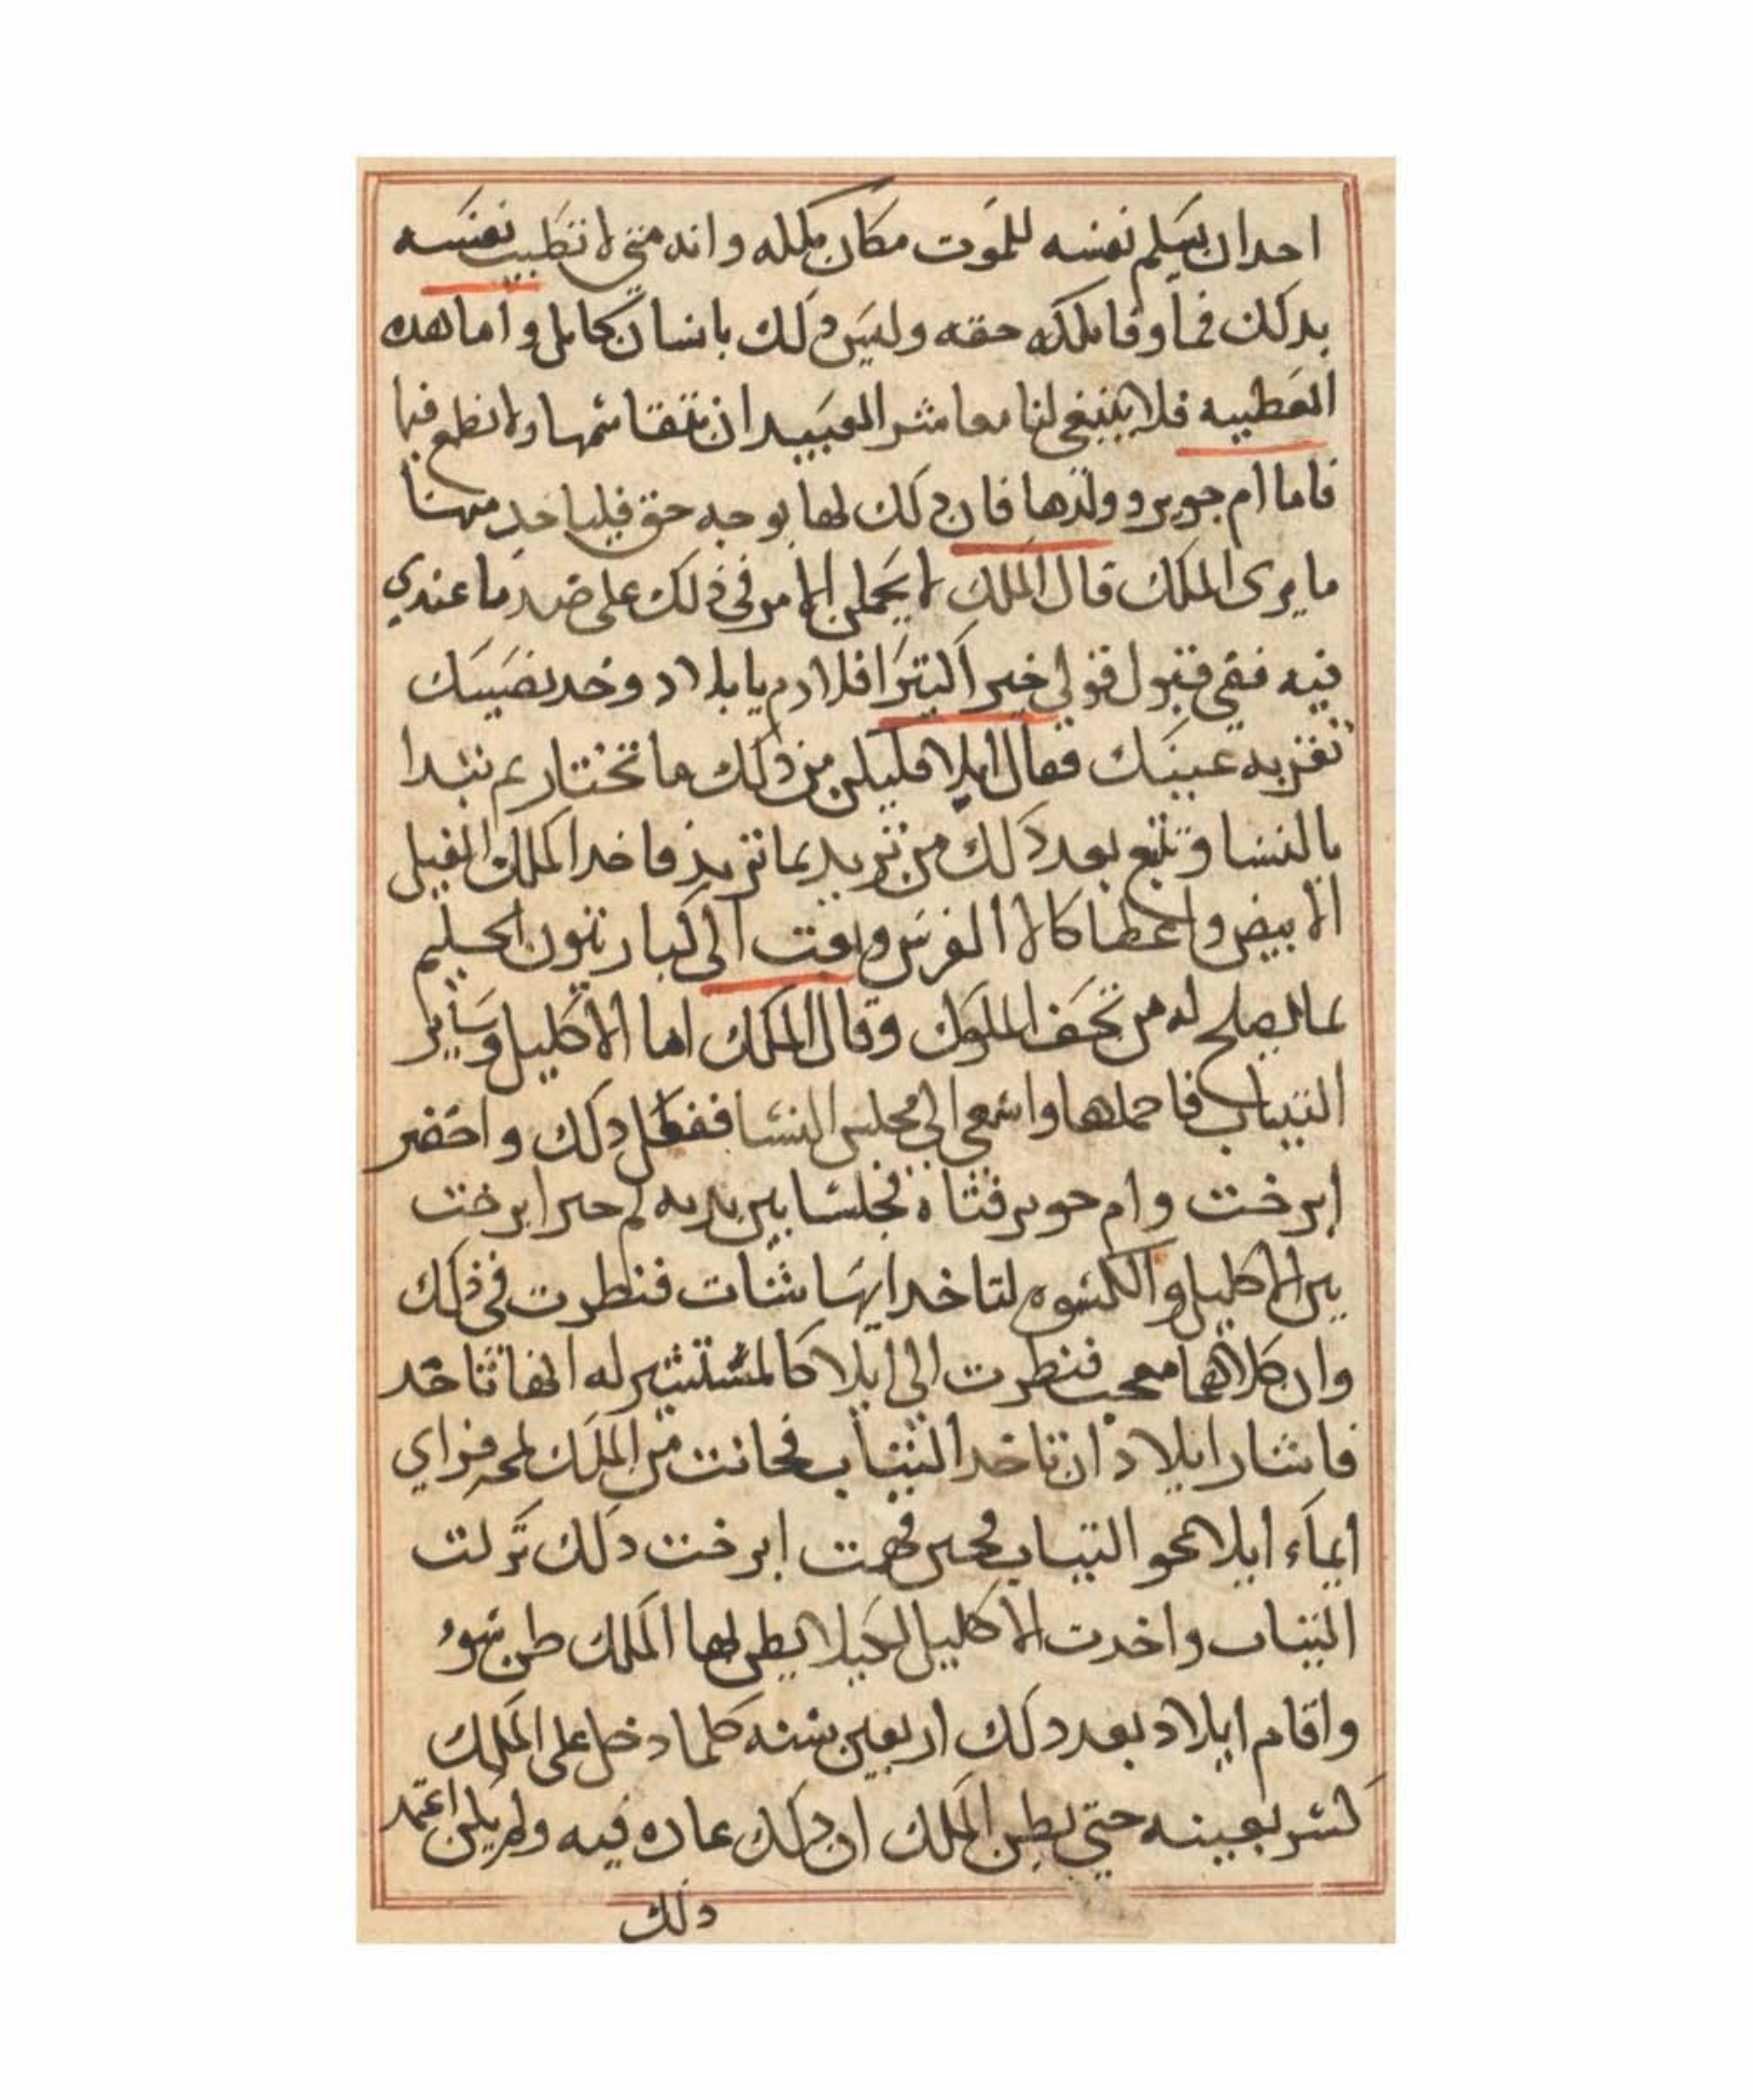 احدان يسلم نفسه للموت مكان ملكه وانه متى لا تطيب نفسه
بدلك فما وفا ملكه حقه وليس دلك بانسان كامل واما هده
العطييه فلا ينبغى لنا معاشر العبيد ان نتقاسمها ولا نطمع فيها
فاما ام جوير وولدها فان دلك لها بوجه حق فلياخد منها
ما يرى الملك قال الملك لا يحملن الامر فى ذلك على ضد ما عندي
فيه ففي قبول قولي خير اكيتر افلا دم يا بلاد وخد نصيبك
تقر به عينك فقال ايلا فليكن من دلك ما تختار ثم نبدا
بالنسا وتتبع بعد دلك من تريد بما تريد فاخد الملك الفيل
الابيض واعطا كالا الفرس وبعت الى كبار تيون الحليم
بما يصلح له من تحف الملوك وقال الملك اما الاكليل وساير
التياب فاحملها واسعى الى مجلس النسا ففعل دلك واحضر
ابرخت وام حوير فتاه فجلسا بين يديه ثم خير ابرخت
بين الاكليل والكسوه لتاخد ايها شات فنظرت فى ذلك
وان كلاهما معجب فنظرت الى ايلا كالمستشير له ايها تاخد
فاشار ايلاد ان تاخد التياب فحانت من الملك لمحه فراي
ايماء ايلا نحو التياب فحين فهمت ابرخت دلك تركت
التياب واخدت الاكليل لكيلا يظن لها الملك ظن سوء
واقام ايلاد بعد دلك اربعين سنه كلما دخل على الملك
كسر بعينه حتى يظن الملك ان دلك عاده فيه ولم يكن اعتمد
دلك